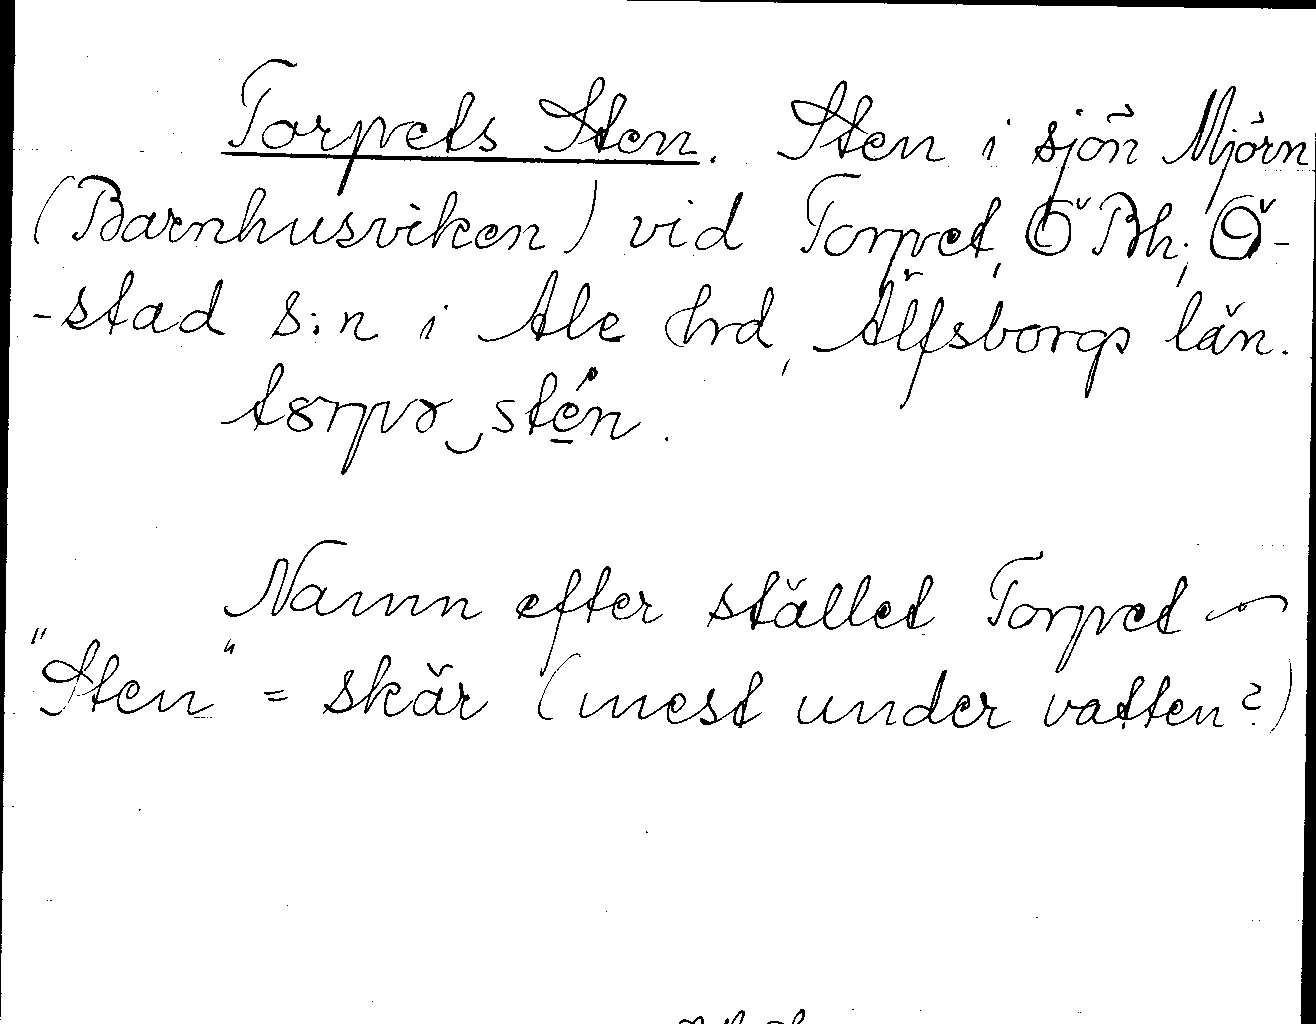 Torpets Sten. Sten i sjön Mjörn
(Barnhusviken) vid Torpet, Ö Bh; Ö-
-stad s:n i Ale hrd, Älfsborgs län.
stén.
Namn efter stället Torpet
"Sten" = skär (mest under vatten?)